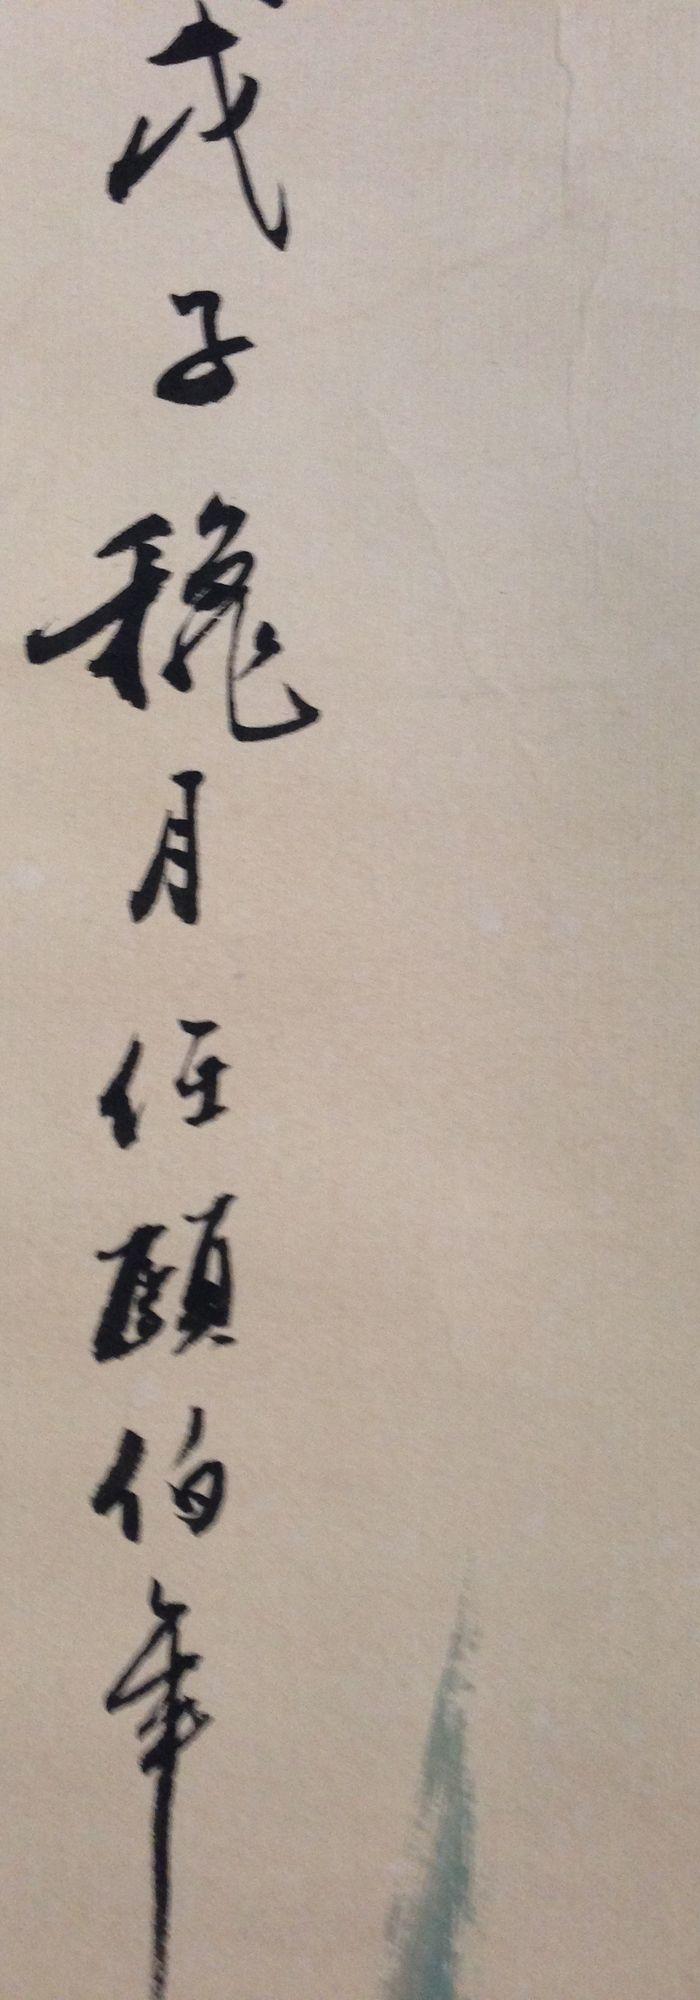 戊子穐月任頤伯年